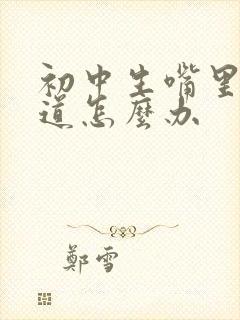 初中生嘴里
道怎麼办
鄭雪